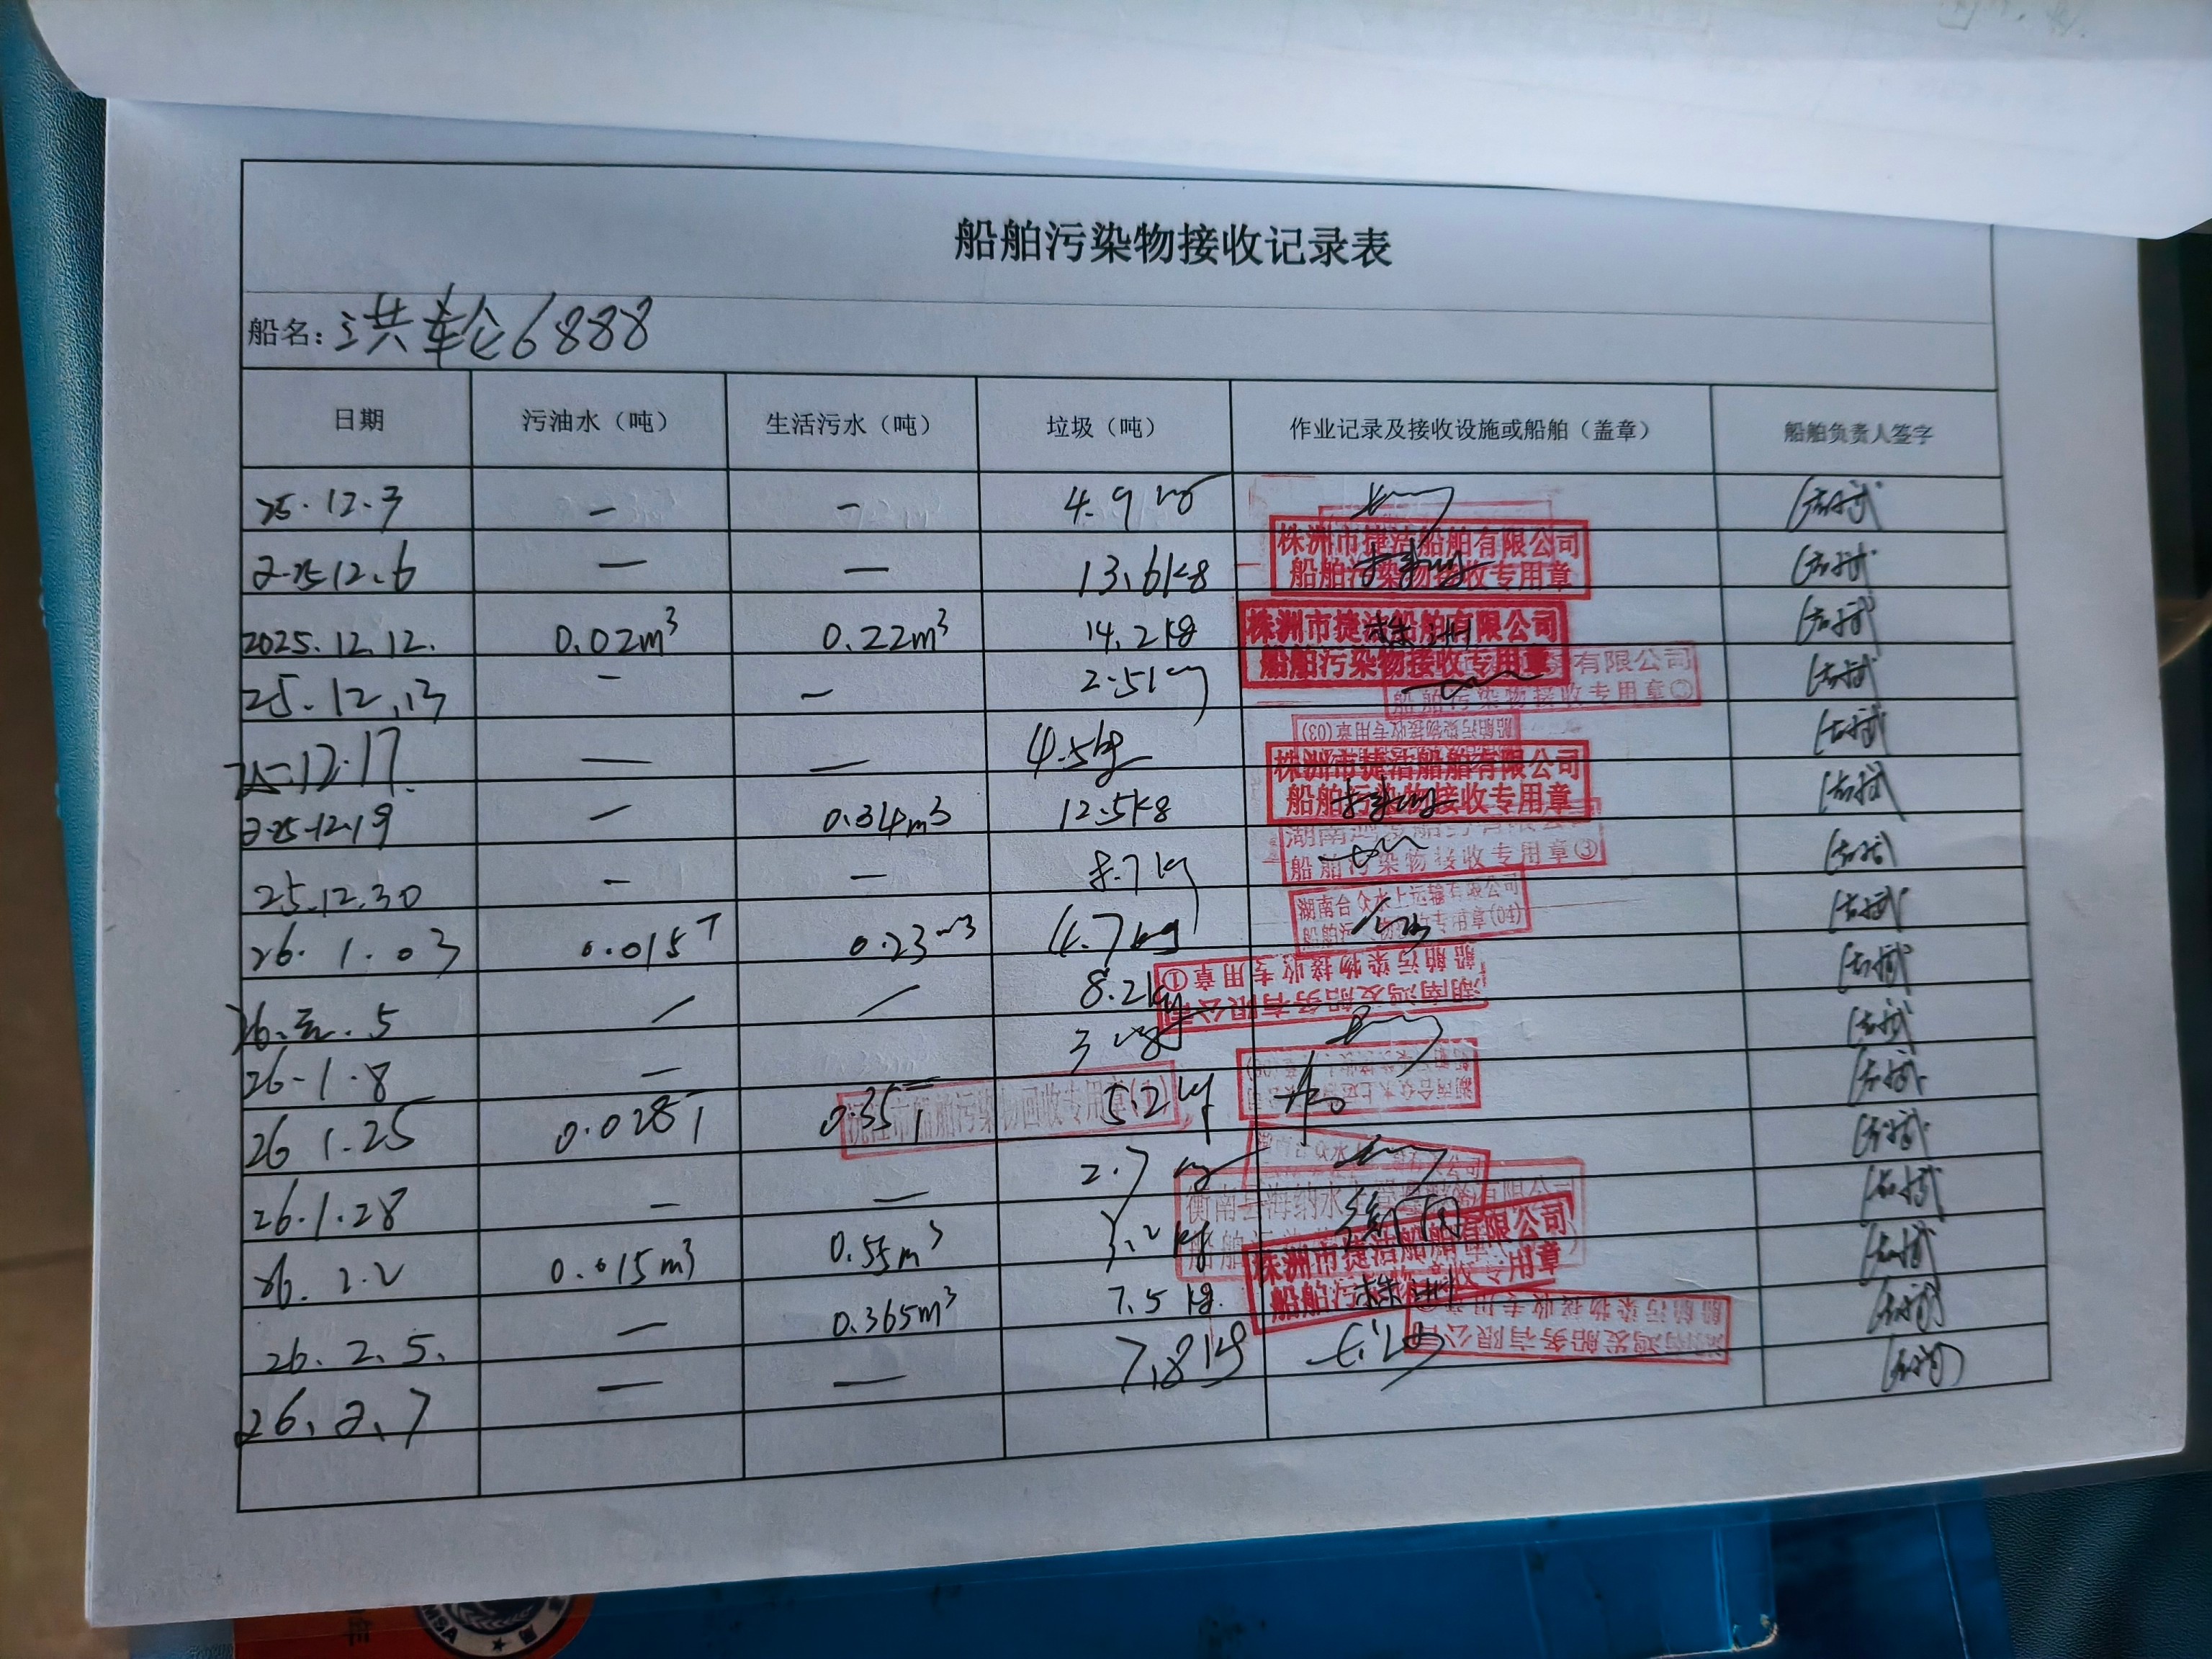 船舶污染物接收记录表
船名: 洪轮6888
日期 污油水（吨） 生活污水（吨） 垃圾（吨） 作业记录及接收设施或船舶（盖章） 船舶负责人签字
25.12.3 — — 4.9kg
2025.12.6 — — 13.6kg 株洲市捷洁船舶有限公司
船舶污染物接收专用章
2025.12.12. 0.02m³ 0.22m³ 14.2kg 株洲市捷洁船舶有限公司
船舶污染物接收专用章
25.12.13 — — 2.5kg 有限公司
船舶污染物接收专用章
25.12.17 — — 4.5kg 船舶污染物接收专用章(03)
2025.12.19 — 0.34m³ 12.5kg 株洲市捷洁船舶有限公司
船舶污染物接收专用章
25.12.30 — — 8.7kg 湖南鸿发船务有限公司
船舶污染物接收专用章③
26.1.03 0.015T 0.23m³ 4.7kg 湖南合众水上运输有限公司
船舶污染物接收专用章(04)
26.元.5 / / 8.2kg 湖南鸿发船务有限公司
船舶污染物接收专用章①
26.1.8 — 3kg
26 1.25 0.028T 0.35T 5.2kg 沅江市船舶污染物回收专用章
26.1.28 — — 2.7kg
26.2.2 0.015m³ 0.55m³ 衡南县海纳水上
26.2.5. — 0.365m³ 7.5kg 株洲市捷洁船舶有限公司
船舶污染物接收专用章
26.2.7 — — 7.8kg 湖南鸿发船务有限公司
船舶污染物接收专用章
MSA